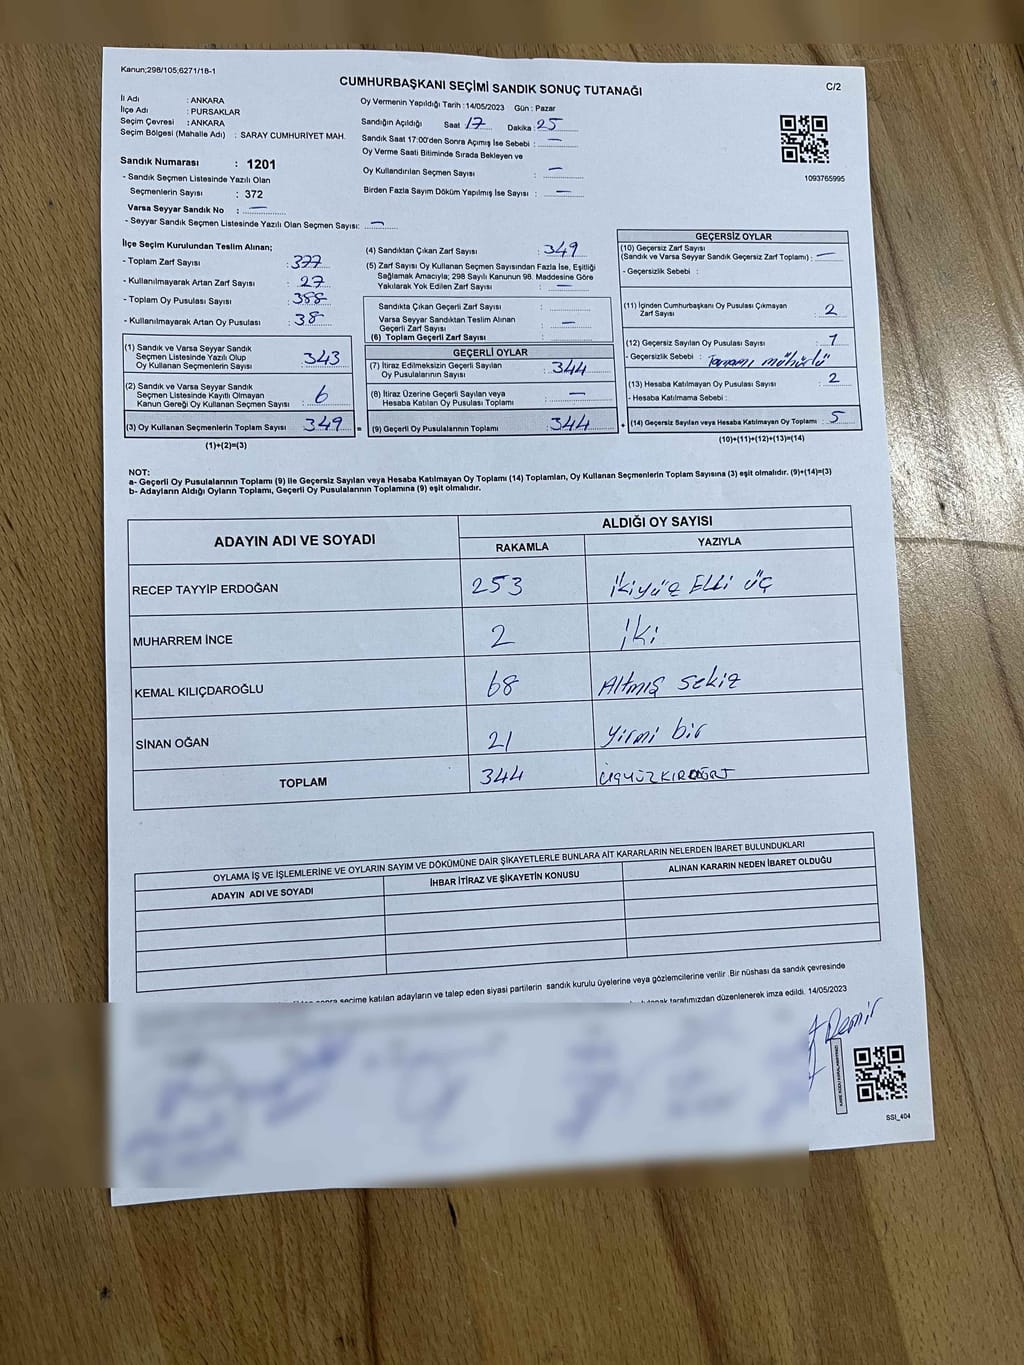 Kanun;298/105;6271/18-1
CUMHURBAŞKANI SEÇİMİ SANDIK SONUÇ TUTANAĞI
C/2
İl Adı : ANKARA
İlçe Adı : PURSAKLAR
Seçim Çevresi : ANKARA
Seçim Bölgesi (Mahalle Adı) : SARAY CUMHURİYET MAH.
Sandık Numarası : 1201
- Sandık Seçmen Listesinde Yazılı Olan
Seçmenlerin Sayısı : 372
Varsa Seyyar Sandık No : —
- Seyyar Sandık Seçmen Listesinde Yazılı Olan Seçmen Sayısı: —
Oy Vermenin Yapıldığı Tarih : 14/05/2023 Gün : Pazar
Sandığın Açıldığı Saat 17 Dakika : 25
Sandık Saat 17:00'den Sonra Açımış İse Sebebi : —
Oy Verme Saati Bitiminde Sırada Bekleyen ve
Oy Kullandırılan Seçmen Sayısı : —
Birden Fazla Sayım Döküm Yapılmış İse Sayısı : —
1093765995
İlçe Seçim Kurulundan Teslim Alınan;
- Toplam Zarf Sayısı : 377
- Kullanılmayarak Artan Zarf Sayısı : 27
- Toplam Oy Pusulası Sayısı : 388
- Kullanılmayarak Artan Oy Pusulası : 38
(1) Sandık ve Varsa Seyyar Sandık
Seçmen Listesinde Yazılı Olup
Oy Kullanan Seçmenlerin Sayısı : 343
(2) Sandık ve Varsa Seyyar Sandık
Seçmen Listesinde Kayıtlı Olmayan
Kanun Gereği Oy Kullanan Seçmen Sayısı : 6
(3) Oy Kullanan Seçmenlerin Toplam Sayısı : 349
(1)+(2)=(3)
(4) Sandıktan Çıkan Zarf Sayısı : 349
(5) Zarf Sayısı Oy Kullanan Seçmen Sayısından Fazla İse, Eşitliği
Sağlamak Amacıyla; 298 Sayılı Kanunun 98. Maddesine Göre
Yakılarak Yok Edilen Zarf Sayısı : —
Sandıkta Çıkan Geçerli Zarf Sayısı :
Varsa Seyyar Sandıktan Teslim Alınan
Geçerli Zarf Sayısı : —
(6) Toplam Geçerli Zarf Sayısı :
GEÇERLİ OYLAR
(7) İtiraz Edilmeksizin Geçerli Sayılan
Oy Pusulalarının Sayısı : 344
(8) İtiraz Üzerine Geçerli Sayılan veya
Hesaba Katılan Oy Pusulası Toplamı : —
= (9) Geçerli Oy Pusulalarının Toplamı : 344
GEÇERSİZ OYLAR
(10) Geçersiz Zarf Sayısı
(Sandık ve Varsa Seyyar Sandık Geçersiz Zarf Toplamı) : —
- Geçersizlik Sebebi :
(11) İçinden Cumhurbaşkanı Oy Pusulası Çıkmayan
Zarf Sayısı : 2
(12) Geçersiz Sayılan Oy Pusulası Sayısı : 1
- Geçersizlik Sebebi : Tamamı mühürlü
(13) Hesaba Katılmayan Oy Pusulası Sayısı : 2
- Hesaba Katılmama Sebebi :
+ (14) Geçersiz Sayılan veya Hesaba Katılmayan Oy Toplamı : 5
(10)+(11)+(12)+(13)=(14)
NOT:
a- Geçerli Oy Pusulalarının Toplamı (9) ile Geçersiz Sayılan veya Hesaba Katılmayan Oy Toplamı (14) Toplamları, Oy Kullanan Seçmenlerin Toplam Sayısına (3) eşit olmalıdır. (9)+(14)=(3)
b- Adayların Aldığı Oyların Toplamı, Geçerli Oy Pusulalarının Toplamına (9) eşit olmalıdır.
ADAYIN ADI VE SOYADI
ALDIĞI OY SAYISI
RAKAMLA YAZIYLA
RECEP TAYYİP ERDOĞAN 253 İkiyüz Elli üç
MUHARREM İNCE 2 iki
KEMAL KILIÇDAROĞLU 68 Altmış sekiz
SİNAN OĞAN 21 Yirmi bir
TOPLAM 344 ÜÇYÜZKIRDÖRT
OYLAMA İŞ VE İŞLEMLERİNE VE OYLARIN SAYIM VE DÖKÜMÜNE DAİR ŞİKAYETLERLE BUNLARA AİT KARARLARIN NELERDEN İBARET BULUNDUKLARI
ADAYIN ADI VE SOYADI İHBAR İTİRAZ VE ŞİKAYETİN KONUSU ALINAN KARARIN NEDEN İBARET OLDUĞU
sonra seçime katılan adayların ve talep eden siyasi partilerin sandık kurulu üyelerine veya gözlemcilerine verilir .Bir nüshası da sandık çevresinde
tutanak tarafımızdan düzenlenerek imza edildi. 14/05/2023
Demir
SSI_404